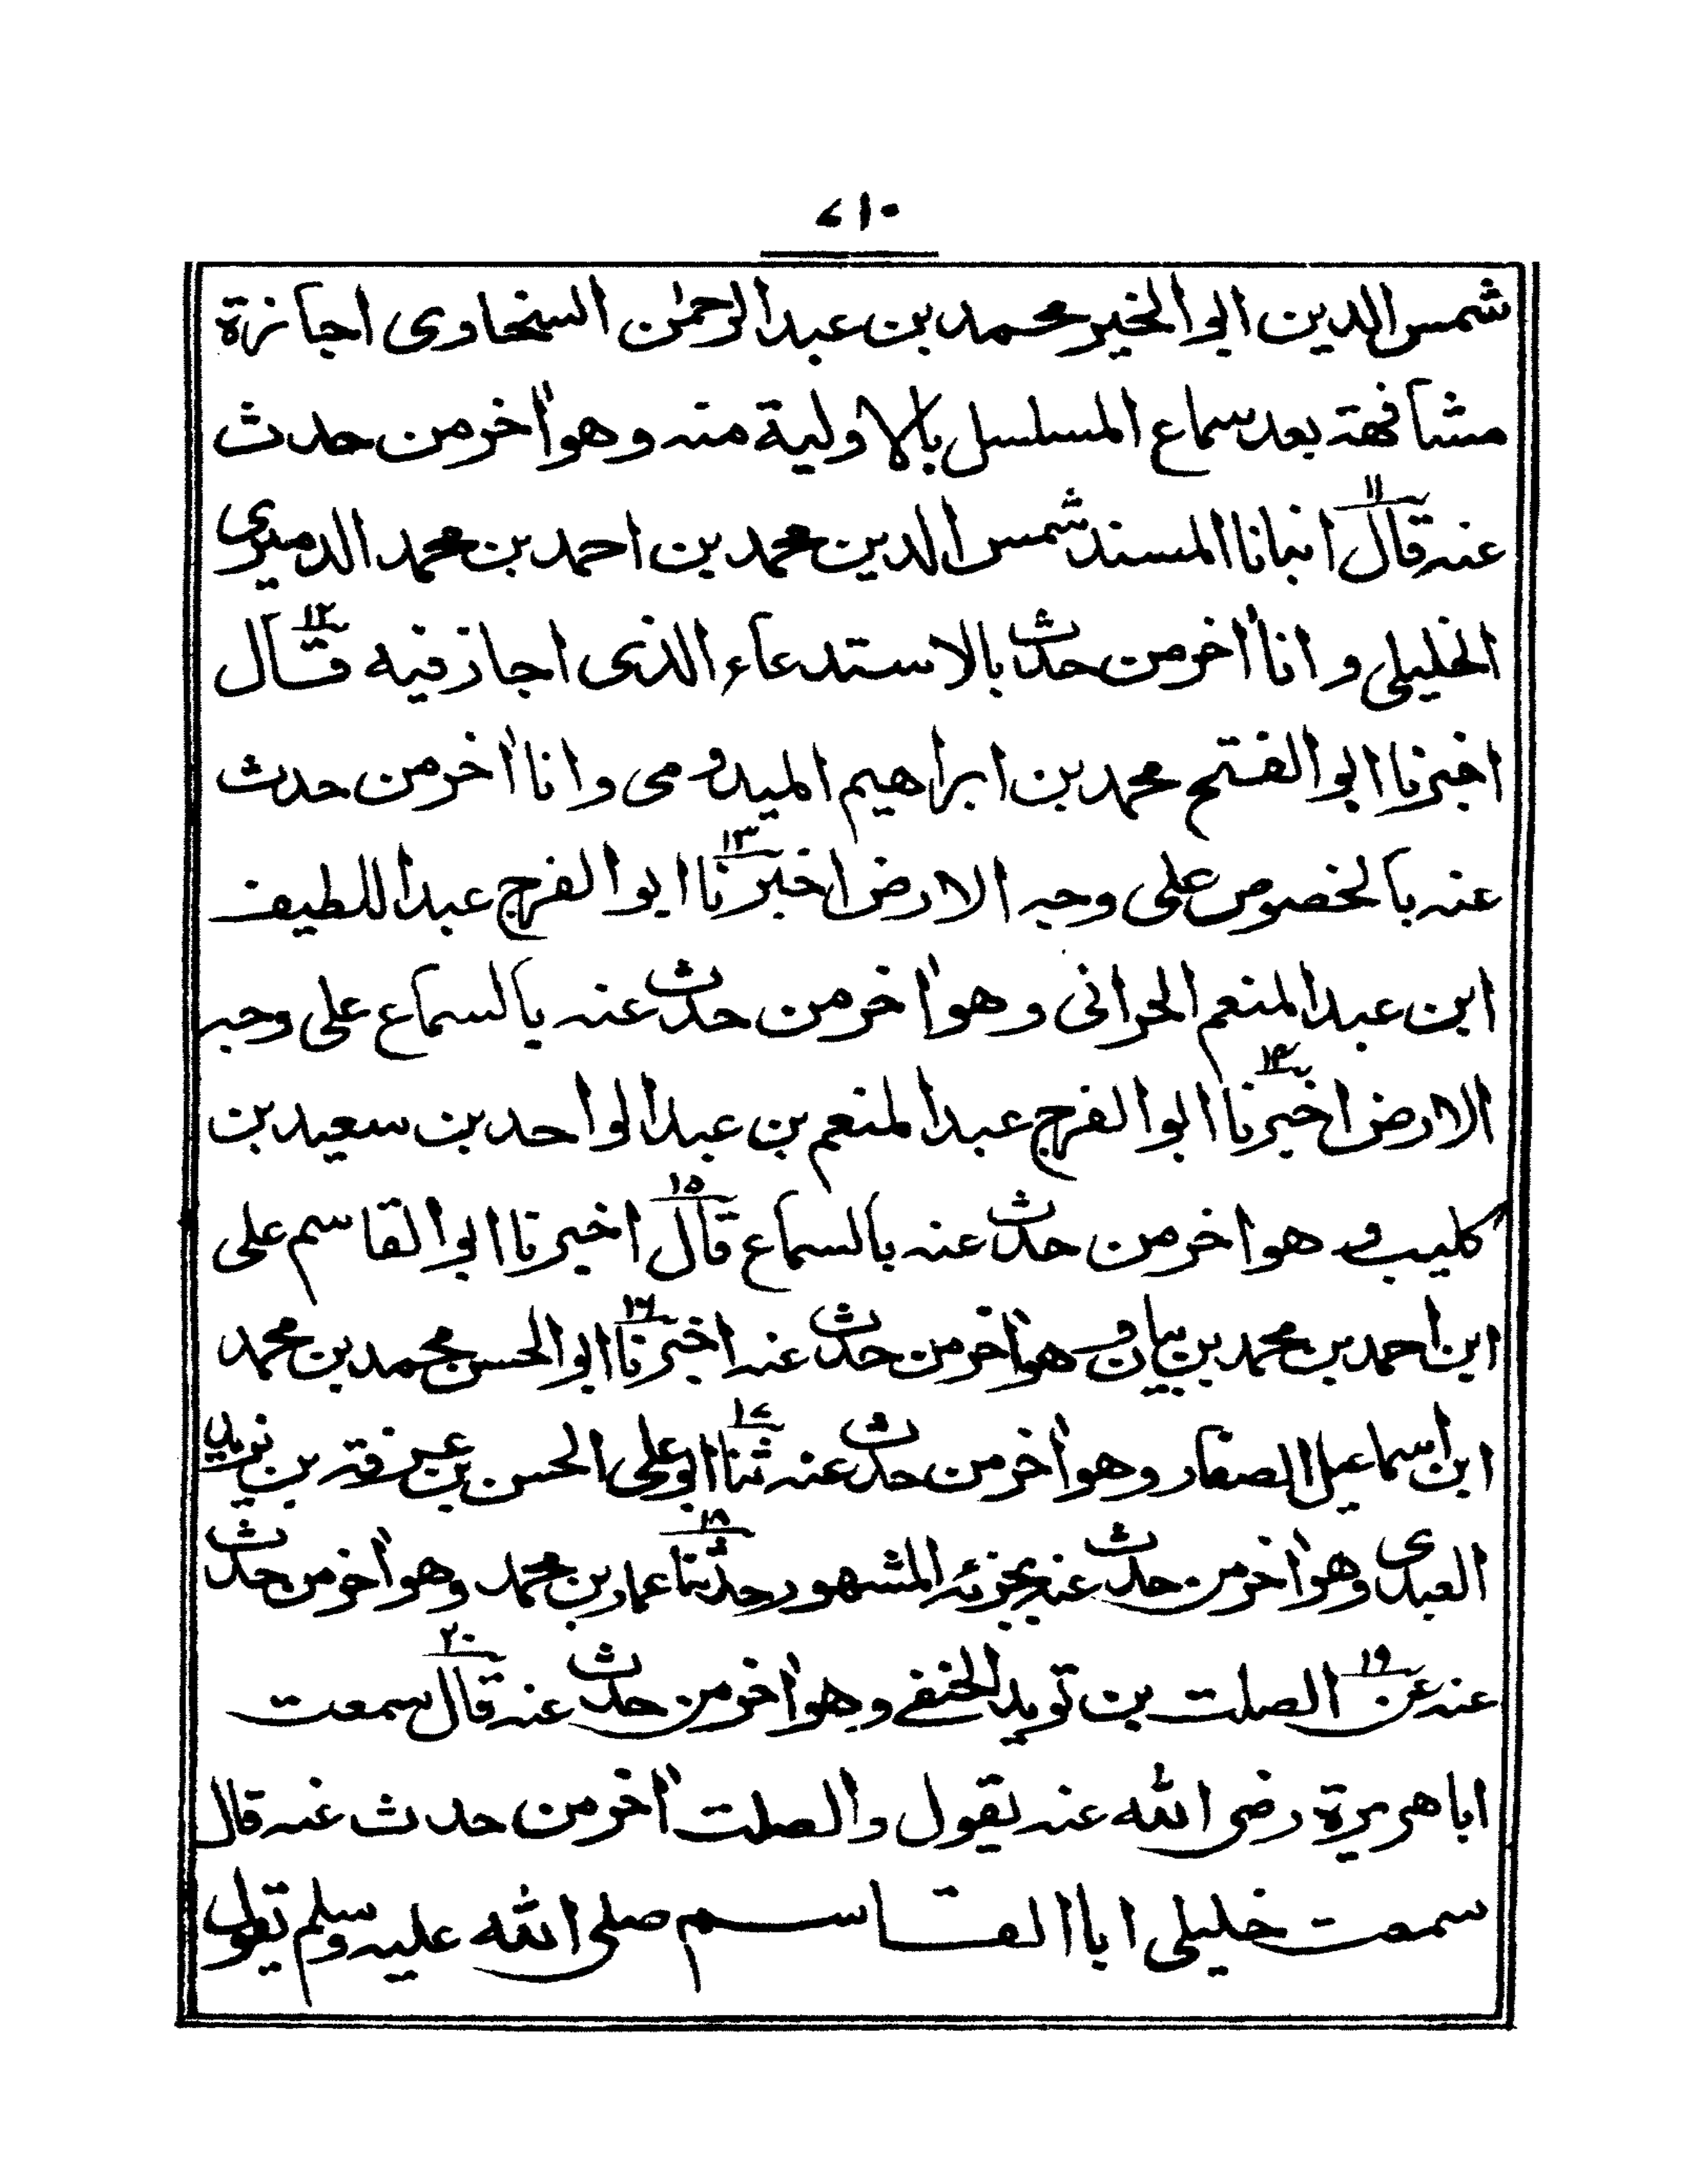 ٢١٠
شمس الدين ابو الخير محمد بن عبد الرحمٰن السخاوى اجازة
مشافهة بعد سماع المسلسل بالاولية منه وهو اٰخر من حدث
عنه قال ١١ انبانا المسند شمس الدين محمد بن احمد بن محمد الدميرى
الخليلى وانا اٰخر من حدث بالاستدعاء الذى اجاز فيه قال ١٢
اخبرنا ابو الفتح محمد بن ابراهيم الميدومى وانا اٰخر من حدث
عنه بالخصوص على وجه الارض اخبرنا ١٣ ابو الفرج عبد اللطيف
ابن عبد المنعم الحرانى وهو اٰخر من حدث عنه بالسماع على وجه
الارض اخبرنا ١٤ ابو الفرج عبد المنعم بن عبد الواحد بن سعيد بن
كليب وهو اخر من حدث عنه بالسماع قال ١٥ اخبرنا ابو القاسم على
ابن احمد بن محمد بن بيان وهو اٰخر من حدث عنه اخبرنا ١٦ ابو الحسن محمد بن محمد
ابن اسماعيل الصفار وهو اٰخر من حدث عنه ثنا ١٧ ابو على الحسن بن عرفة بن يزيد
العبدى وهو اٰخر من حدث عنه بجزئه المشهور حدثنا ١٨ عمار بن محمد وهو اٰخر من حدث
عنه عن ١٩ الصلت بن تويد الحنفے وهو اٰخر من حدث عنه قال ٢٠ سمعت
ابا هريرة رضى الله عنه يقول والصلت اٰخر من حدث عنه قال
سمعت خليلى ابا القاسم صلى الله عليه وسلم يقول